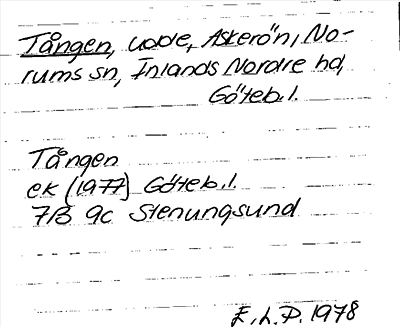 Tången, udde, Askerön, No-
rums sn, Inlands Nordre hd,
Göteb.l.
Tången
ek (1977) Göteb.l.
7B 9c Stenungsund
E.L.P. 1978